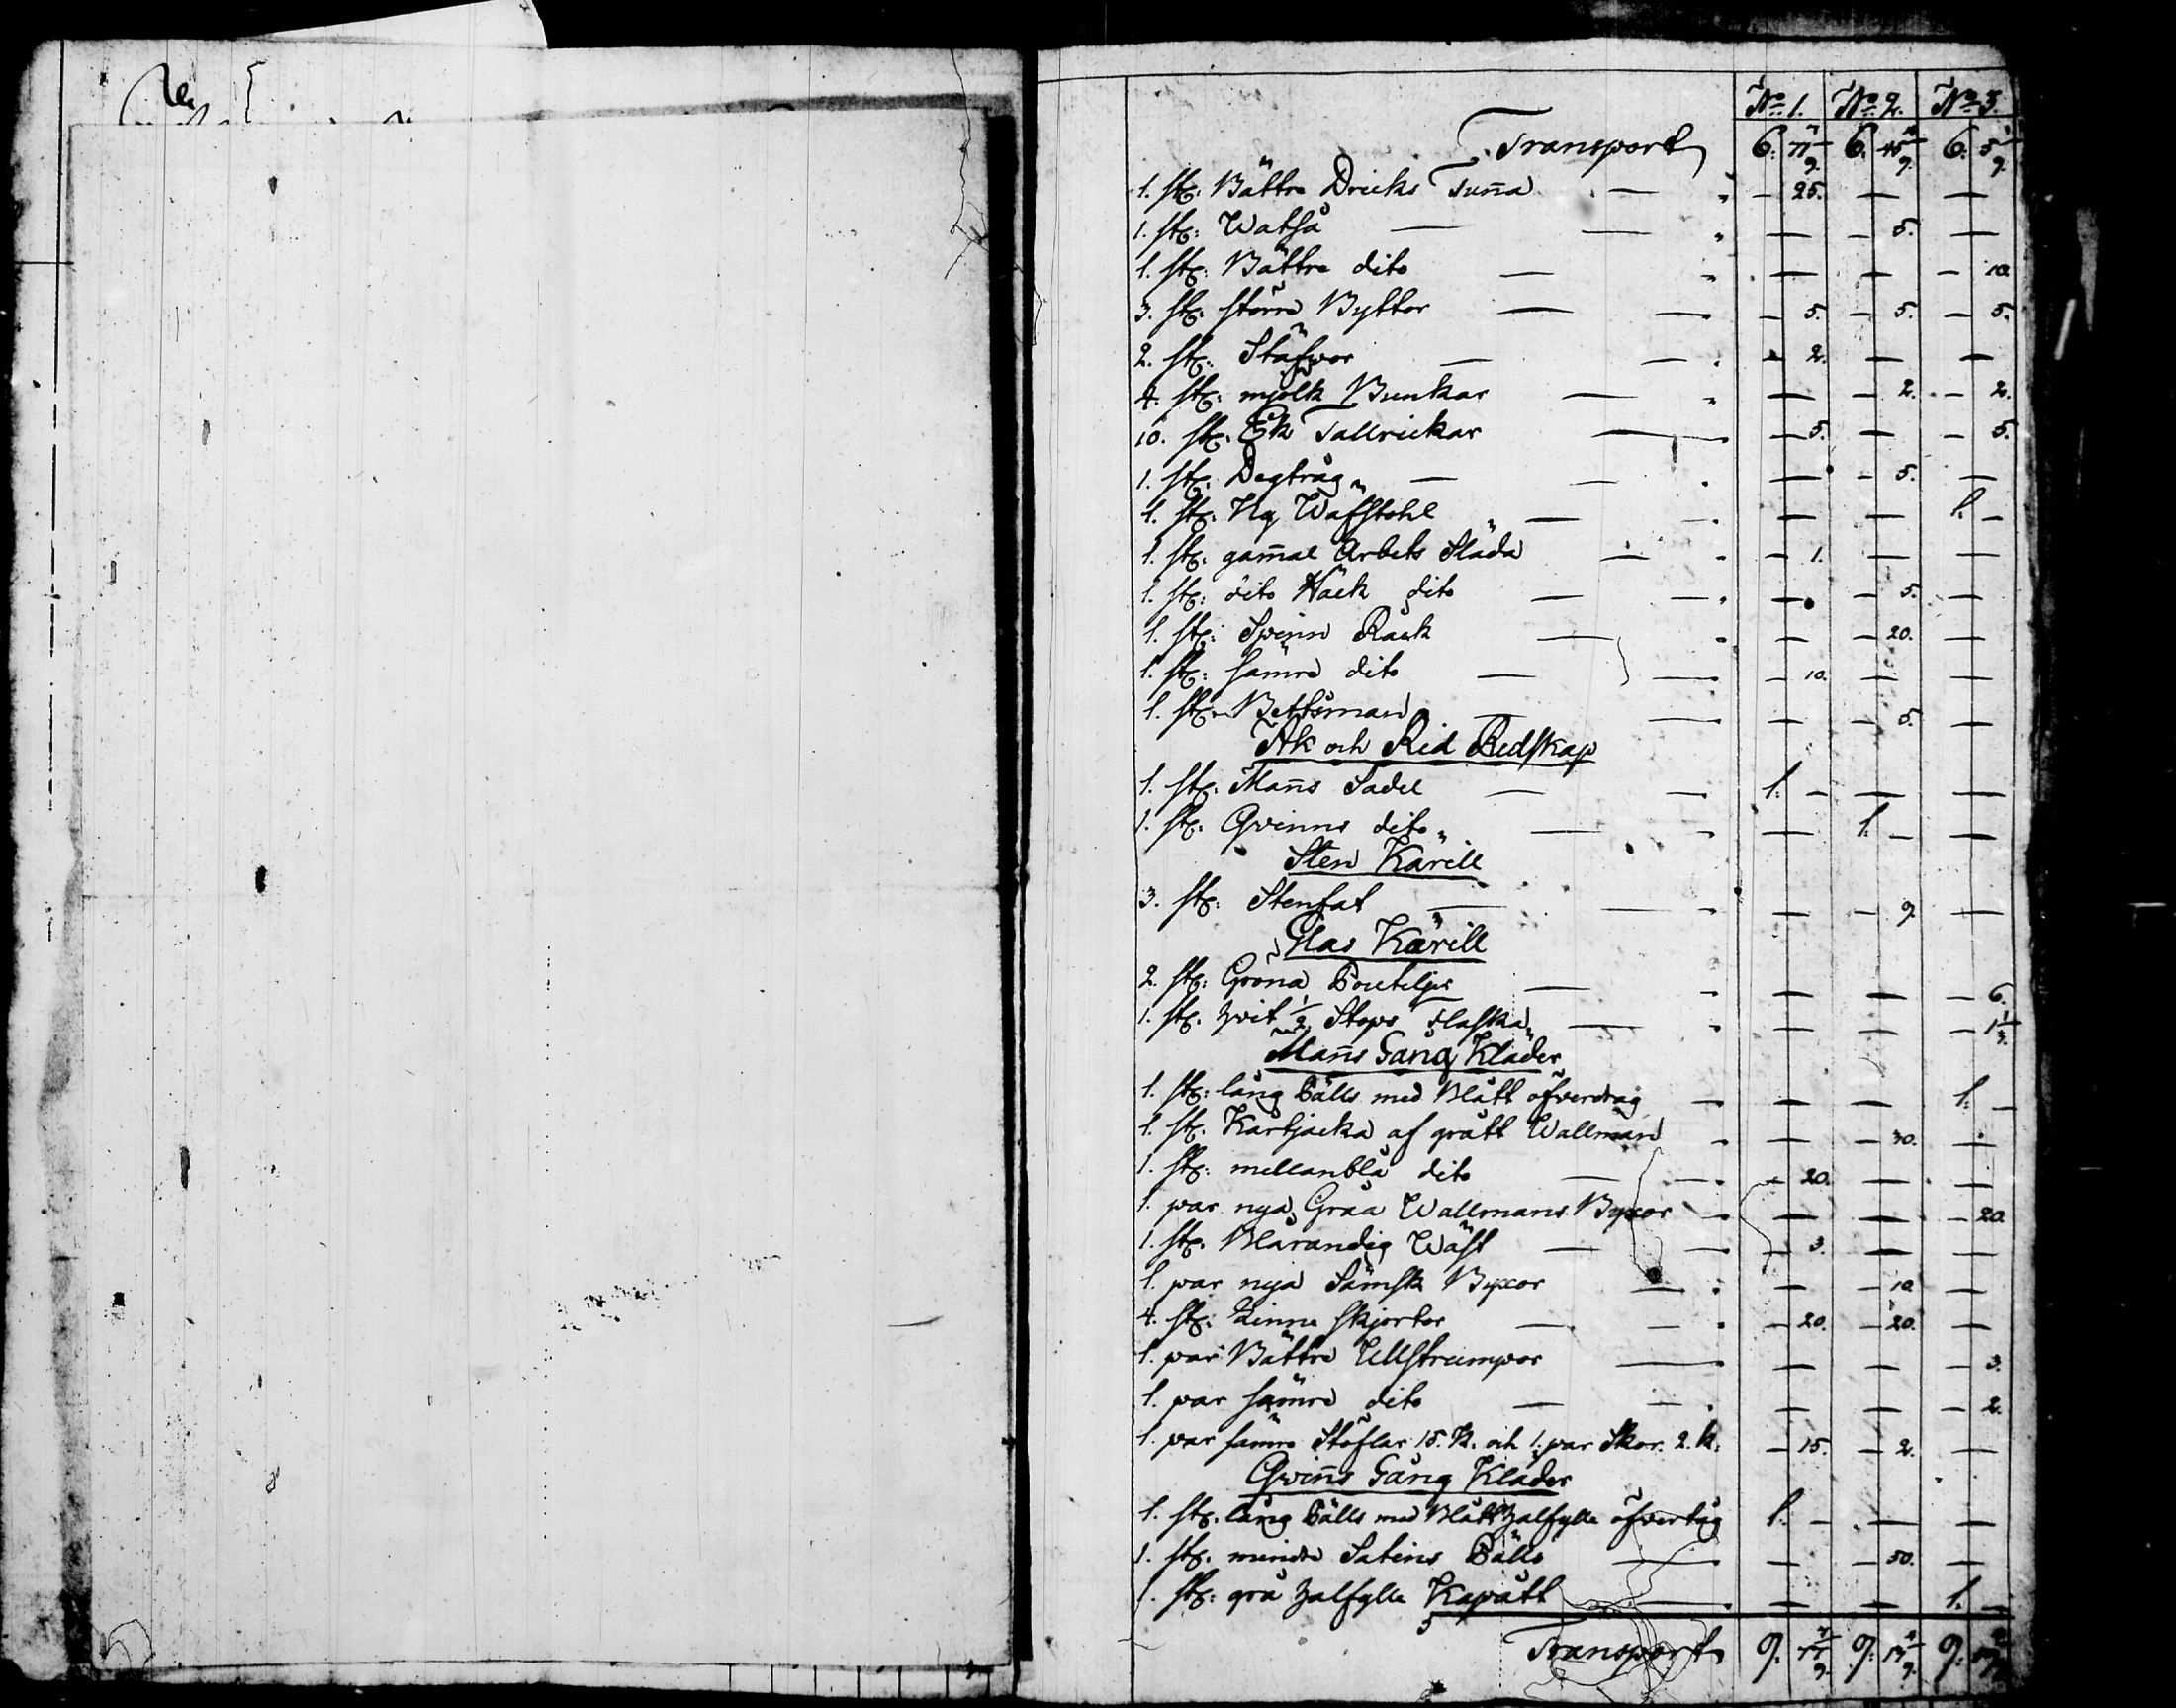 No 1. No 2. No 3.
Transport 6: 6: 6:
1. st: Bättre Dricks Tuña — 25. — —
1. st: Watså — — — 5. —
1. st: Bättre dito — — — 10.
3. st: större Byttor — — 5. — 5. — 5.
2. st: Stäfwor — — 2. — —
4. st: mjölk Bunkar — — — 2. — 2.
10. st: Ek Tallrickar — 5. — — 5.
1. st: Degtråg — — — 5. —
1. st: Ny Wäfstohl — — — — 1: —
1. st: gam̄al Arbets Släda — — 1. — —
1. st: dito Häck dito — — — 5. —
1. st: Spinn Råck — — — 20. —
1. st: sämre dito — — 10. — —
1. st: Bettsman — — — 5. —
Åk och Rid Redskap
1. st: Mañs Sadel — — 1: — — —
1. st: Qvinns dito — — 1: — —
Sten Kärill
3. st: Stenfat — — — — 9. —
Glas Kärill
2. st: Gröna Bouteljer — — — — 6.
1. st: hvit 1/2 Stops Flaska — — — — 1 1/3.
Mañs Gång Kläder
1. st: lång Pälls med Blått öfverdrag — — — 1: —
1. st: Kartjacka af grått Wallman — — 30. —
1. st: mellanblå dito — — 20. — —
1. par nya Gråa Wallmans Byxor — — — — 20.
1. st: Blårandig Wäst — — 3. — —
1. par nya Sämsk Byxor — — — 10. —
4. st: Linne skjortor — — 20. — 20. —
1. par Bättre Ullstrumpor — — — — 3.
1. par sämre dito — — — — 2.
1. par sämre Stöflar 15. K. och 1. par Skor. 2. k. — 15. — 2. —
Qviñs Gång Kläder
1. st: lång Pälls med Blått halfylle öfvertåg 1: — — —
1. st: mindre Satins Pälls — — — 50. —
1. st: grå halfylle Kapått — — — 1: —
Transport 9: 9: 9: